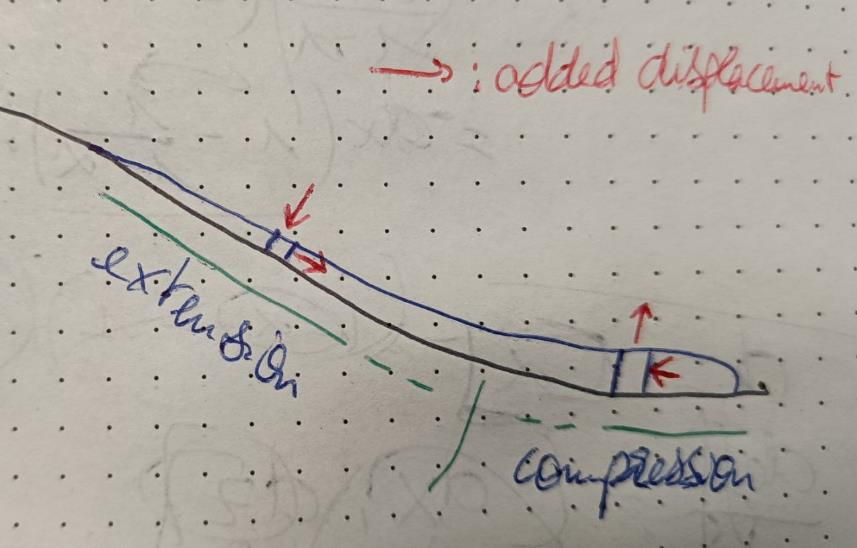 → : added displacement
extension
compression